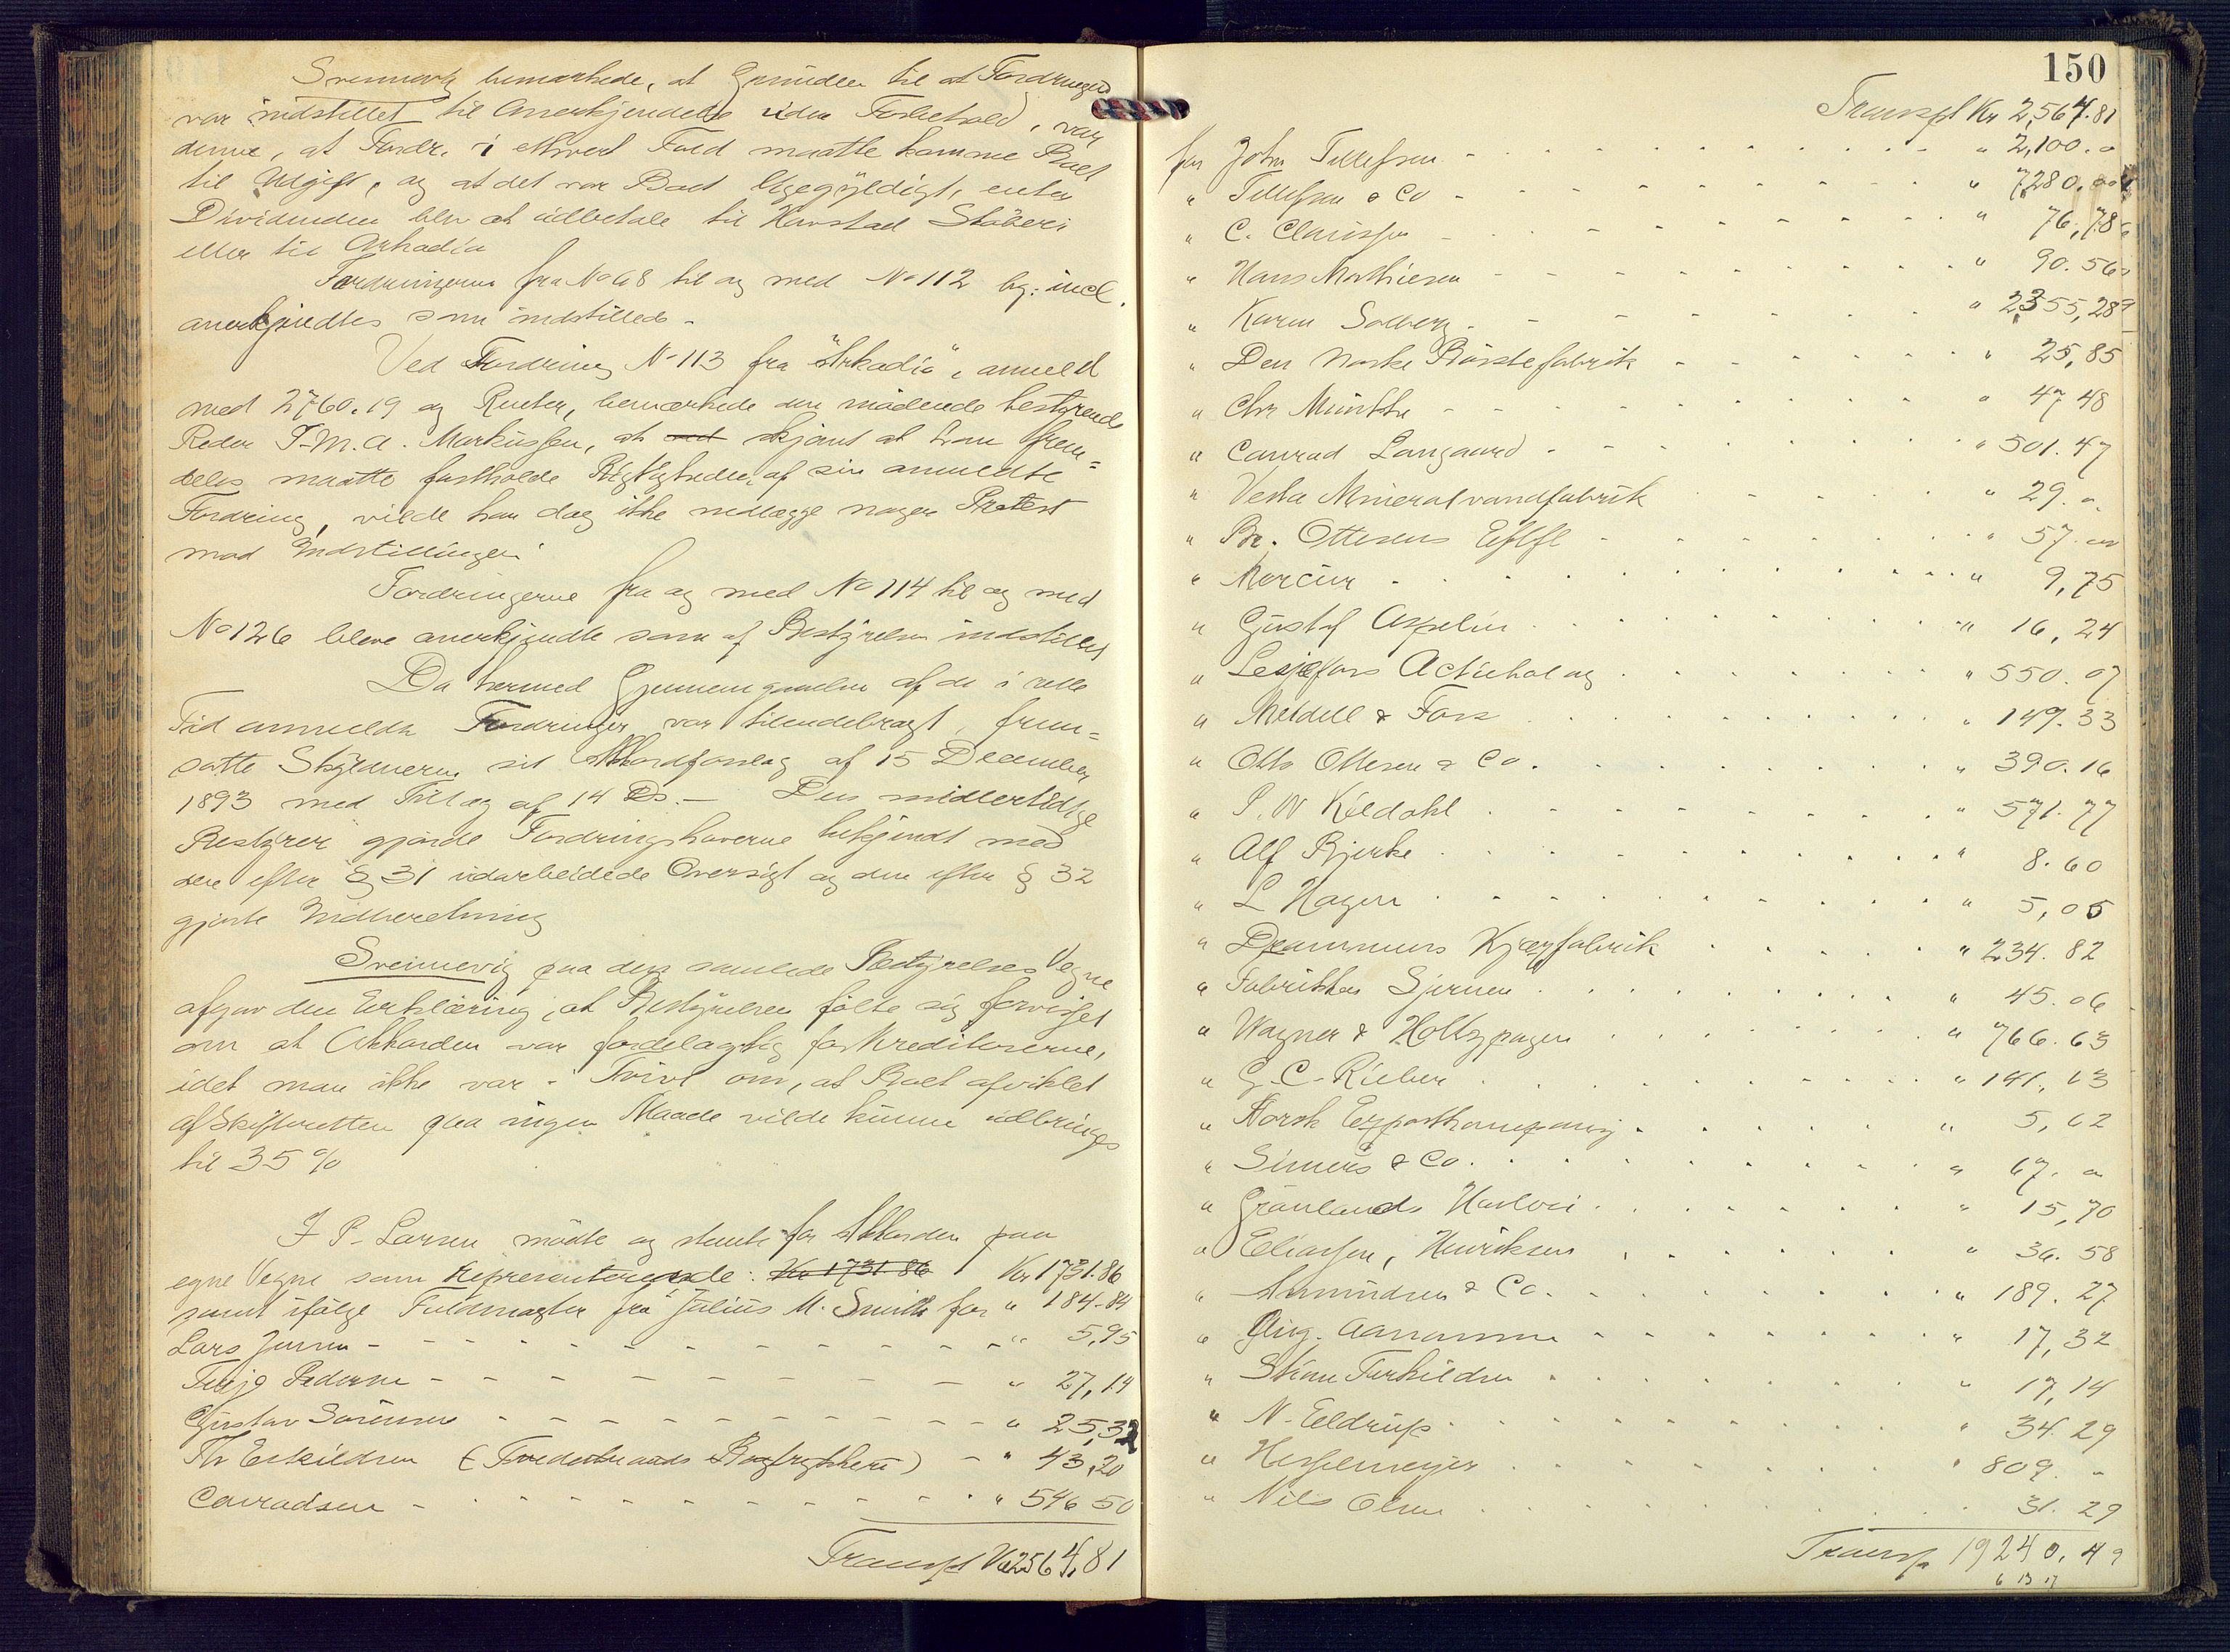 Svennevig bemærkede, at Grunden til at Fordringen
var indstillet til Anerkjendelse uden Forbehold, var
denne, at Fordr. i ethvert Fald maatte komme Boet
til Udgift, og at det var Boet ligegyldigt, enten
Dividenden blev at udbetale til Havstad Støberi
eller til Arkadia
Fordringerne fra No 68 til og med No 112 bg: incl.
anerkjendtes som indstillede -
Ved Fordring No 113 fra "Arkadia", anmeldt
med 2760.19 og Renter, bemærkede den mødende bestyrende
Reder T. M. A. Markussen, at skjønt at han frem=
deles maatte fastholde Rigtigheden af sin anmeldte
Fordring, vilde han dog ikke nedlægge nogen Protest
mod Indstillingen
Fordringerne fra og med No 114 til og med
No 126 bleve anerkjendte som af Bestyrelsen indstillet
Da hermed Gjennemgaaelsen af de i rette
Tid anmeldte Fordringer var tilendebragt, frem=
satte Skyldnerne sit Akkordforslag af 15 December
1893 med Tillæg af 14 Ds. - Den midlertidige
Bestyrer gjorde Fordringshaverne bekjendt med
den efter § 31 udarbeidede Oversigt og den efter § 32
gjorte Indberetning
Svennevig paa den samlede Bestyrelses Vegne
afgav den Erklæring, at Bestyrelsen følte sig forvisset
om at Akkorden var fordelagtig for Kreditorerne,
idet man ikke var i Tvivl om, at Boet afviklet
af Skifteretten paa ingen Maade vilde kunne udbringes
til 35 %
J P. Larsen mødte og stemte for Akkorden paa
egne Vegne som Repræsenterende: Kr 1731.86 Kr 1731.86
samt ifølge Fuldmagter fra Julius M. Smith for " 184.84
Lars Jensen - " 5,95
Terje Pedersen - " 27,14
Gustav Sørensen - " 25,32
Th Eskildsen (Tvedestrands Bogtrykkeri) - " 43,20
Conradsen - " 546 50
Transpt Kr 2564,81
150
Transpt Kr 2,564.81
for John Tellefsen - " 2,100. "
" Tellefsen & Co - " 7280.
" C. Clausen - " 76,78
" Hans Mathiesen - " 90.56
" Karen Solberg - " 2355,28
" Den Norske Børstefabrik - " 25,85
" Chr Münthe - " 47 48
" Conrad Langaard - " 501.47
" Vesta Mineralvandfabrik " 29. "
" Br. Ottesens Eftfl - " 57. "
" Mercur " 9,75
" Gustaf Aspelin " 16,24
" Lesjøfors Actiebolag " 550.07
" Meldell & Foss " 149.33
" Otto Ottesen & Co. " 390.16
" P. W Kildahl " 571.77
" Alf Bjerke " 8.60
" L Hagen " 5,05
" Drammens Kjæxfabrik " 234.82
" Fabrikken Stjernen " 45.06
" Wagner & Holtzhagen " 766.63
" G. C. Rieber " 141,13
" Norsk Exportkompani " 5,62
" Simers & Co. " 67. "
" Grønlands Væveri " 15,70
" Eliassen, Henriksen " 36.58
" Amundsen & Co. " 189.27
" Aug. Aanonsen " 17,32
" Stian Terkildsen " 17,14
" N. Eeldrup " 34.29
" Hesselmeyer " 809. "
" Nils Olsen 31.29
Transp 19240.49
6 13 17